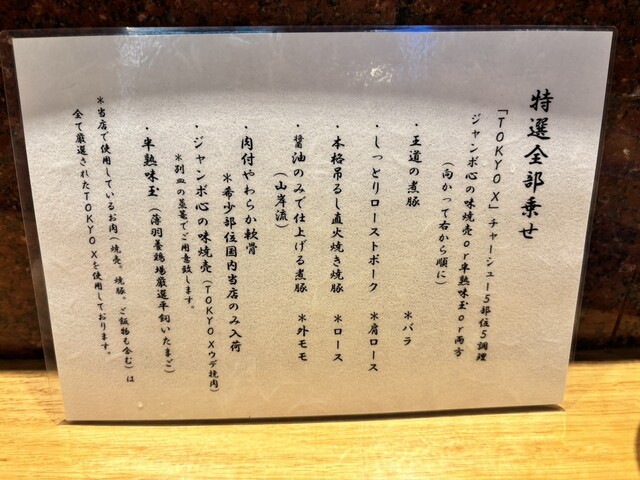 特選全部乗せ
「TOKYO X」チャーシュー5部位5調理
ジャンボ心の味焼売or半熟味玉or両方
(向かって右から順に)
・王道の煮豚 *バラ
・しっとりローストポーク *肩ロース
・本格吊るし直火焼き焼豚 *ロース
・醤油のみで仕上げる煮豚 *外モモ
(山岸流)
・肉付やわらか軟骨
*希少部位国内当店のみ入荷
・ジャンボ心の味焼売(TOKYO Xウデ挽肉)
*別皿の蒸篭でご用意致します。
・半熟味玉(薄羽養鶏場厳選平飼いたまご)
*当店で使用しているお肉(焼売、焼豚、ご飯物も含む)は
全て厳選されたTOKYO Xを使用しております。